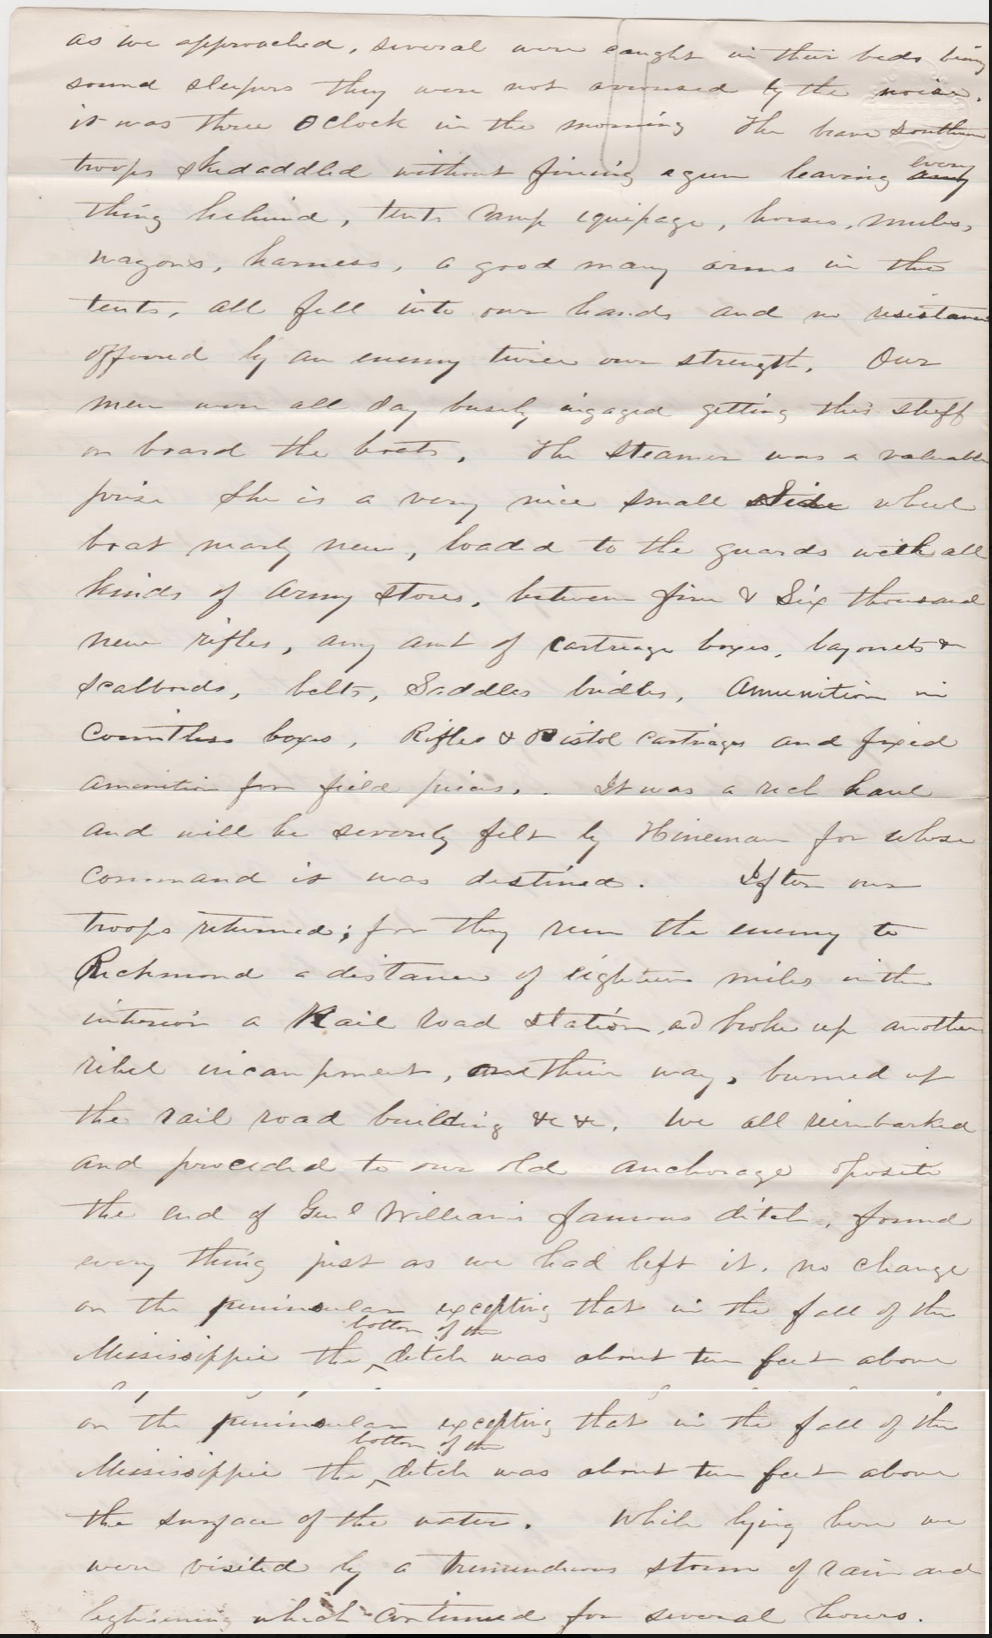 as we approached, several were caught in their beds being
sound sleepers they were not aroused by the noise.
it was three Oclock in the morning The brave southern
troops skedaddled without firing a gun leaving every any
thing behind, tents camp equipage, horses, mules,
wagons, harness, a good many arms in the
tents, all fell into our hands and no resistance
offered by an enemy twice our strength. Our
men were all day busily ingaged getting this stuff
on board the boats. The steamer was a valuable
prise She is a very nice small side wheel
boat nearly new, loaded to the guards with all
kinds of army stores, between five & Six thousand
new rifles, any amt of cartriage boxes, bayonets &
scalbords, belts, Saddles bridles, Amunition in
Countless boxes, Rifles & Pistol cartriages and fixed
amunition for field pieces. . It was a rich haul
and will be severely felt by Hineman for whose
command it was destined. After our
troops returned; for they run the enemy to
Richmond a distance of eighteen miles in the
interior a Rail road station, ad broke up another
ribel incampment, on their way, burned up
the rail road building &c &c. We all reimbarked
and proceded to our old anchorage oposite
the end of Genl Williams famous ditch, found
every thing just as we had left it. no change
on the peninsular excepting that in the fall of the
bottom of the
Mississippie the ditch was about ten feet above
on the peninsular excepting that in the fall of the
bottom of the
Mississippie the ditch was about ten feet above
the surface of the water. While lying here we
were visited by a tremendrous storm of rain and
lightening which continued for several hours.